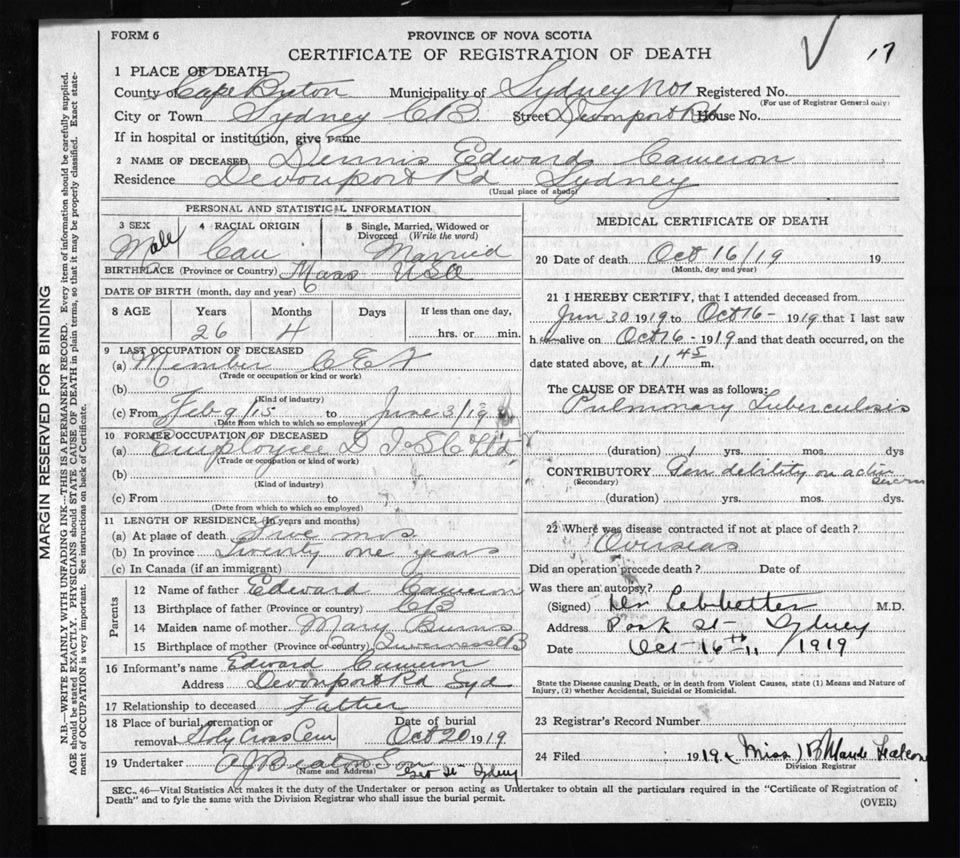 17
FORM 6
PROVINCE OF NOVA SCOTIA
CERTIFICATE OF REGISTRATION OF DEATH
1 PLACE OF DEATH
County of Cape Breton Municipality of Sydney No 1 Registered No.
(For use of Registrar General only)
City or Town Sydney C B. Street Devonport Rd House No.
If in hospital or institution, give name
2 NAME OF DECEASED Dennis Edward Cameron
Residence Devonport Rd Sydney
(Usual place of abode)
PERSONAL AND STATISTICAL INFORMATION
3 SEX 4 RACIAL ORIGIN 5 Single, Married, Widowed or Divorced (Write the word)
Male Married
BIRTHPLACE (Province or Country) Mass USA
6
DATE OF BIRTH (month, day and year)
8 AGE Years Months Days If less than one day,
26 4 hrs. or min.
9 LAST OCCUPATION OF DECEASED
(a) Member C E F
(Trade or occupation or kind or work)
(b)
(Kind of industry)
(c) From Feb 9/15 to June 3/19
(Date from which to which so employed)
10 FORMER OCCUPATION OF DECEASED
(a) Employee D I & S C Ltd.
(Trade or occupation or kind or work)
(b)
(Kind of industry)
(c) From to
(Date from which to which so employed)
11 LENGTH OF RESIDENCE (In years and months)
(a) At plase of death Five mos
(b) In province Twenty one years
(c) In Canada (if an immigrant)
Parents
12 Name of father Edward Cameron
13 Birthplace of father (Province or country) C B
14 Maiden name of mother Mary Burns
15 Birthplace of mother (Province or country) Inverness C B
16 Informant's name Edward Cameron
Address Devonport Rd Syd
17 Relationship to deceased Father
18 Place of burial, cremation or removal Holy Cross Cem Date of burial Oct 20 1919
19 Undertaker A J Beaton Son
(Name and Address) Geo St Sydney
MEDICAL CERTIFICATE OF DEATH
20 Date of death Oct 16/19 19
(Month, day and year)
21 I HEREBY CERTIFY, that I attended deceased from
Jun 30 1919 to Oct 16 - 1919 that I last saw
h alive on Oct 16 - 1919 and that death occurred, on the
date stated above, at 11 45 m.
The CAUSE OF DEATH was as follows:
Pulmonary Tuberculosis
(duration) yrs. mos. dys
CONTRIBUTORY debility on active
(Secondary)
(duration) yrs. mos. dys.
22 Where was disease contracted if not at place of death?
Overseas
Did an operation precede death? Date of
Was there an autopsy?
(Signed) M.D.
Address Park St - Sydney
Date Oct 16th 1919
State the Disease causing Death, or in death from Violent Causes, state (1) Means and Nature of
Injury, (2) whether Accidental, Suicidal or Homicidal.
23 Registrar's Record Number
24 Filed 1919 Miss Maude
Division Registrar
SEC., 46—Vital Statistics Act makes it the duty of the Undertaker or person acting as Undertaker to obtain all the particulars required in the "Certificate of Registration of
Death" and to fyle the same with the Division Registrar who shall issue the burial permit.
(OVER)
MARGIN RESERVED FOR BINDING
N.B.—WRITE PLAINLY WITH UNFADING INK—THIS IS A PERMANENT RECORD. Every item of information should be carefully supplied.
AGE should be stated EXACTLY. PHYSICIANS should STATE CAUSE OF DEATH in plain terms, so that it may be properly classified. Exact state-
ment of OCCUPATION is very important. See instructions on back of Certificate.